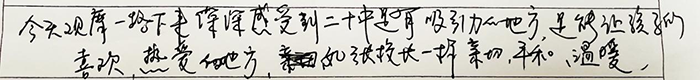 今天观摩一场下来深深感受到二十中是有吸引力的地方,是能让孩子们
喜欢,热爱的地方,如张校长一样亲切,平和,温暖,